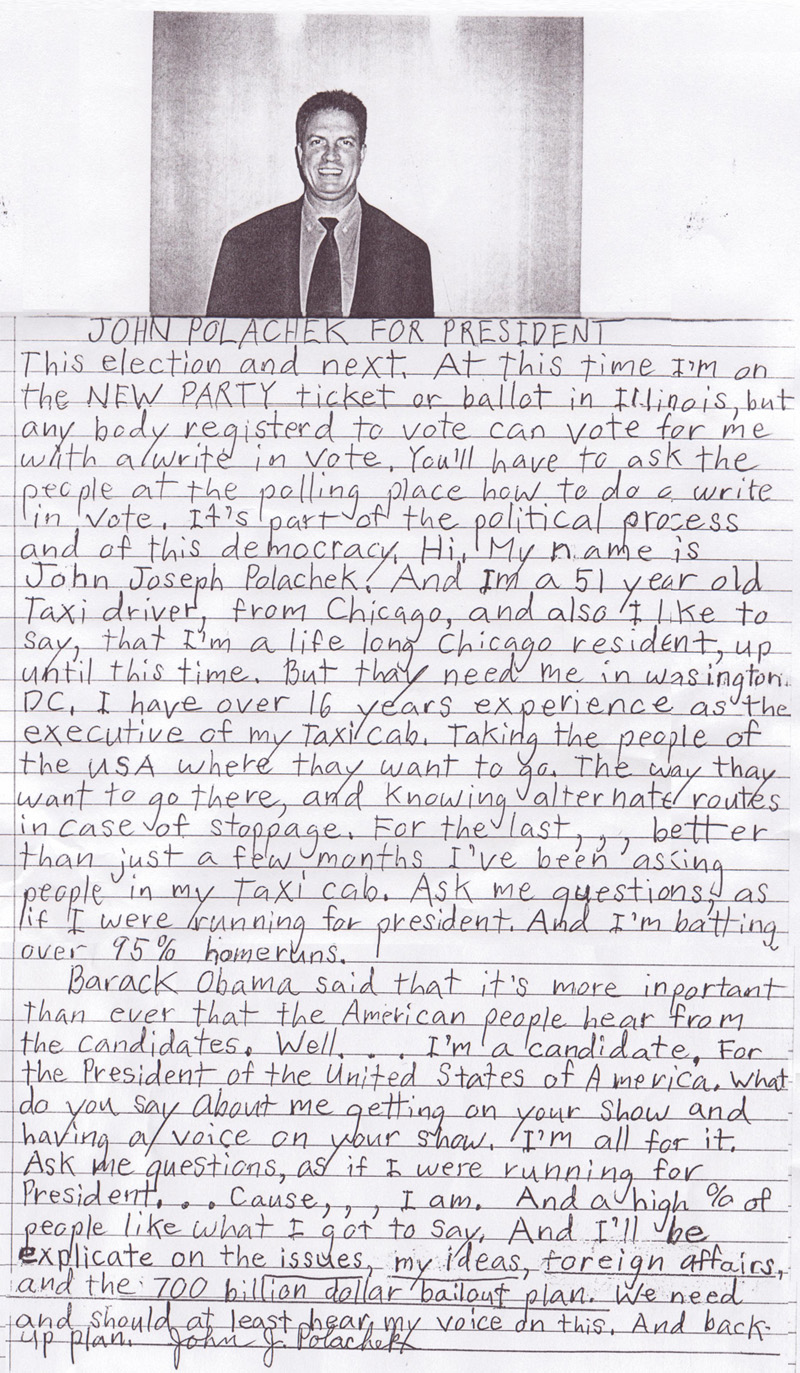 JOHN POLACHEK FOR PRESIDENT
This election and next. At this time I'm on
the NEW PARTY ticket or ballot in Illinois, but
any body registerd to vote can vote for me
with a write in vote. You'll have to ask the
people at the polling place how to do a write
in vote. It's part of the political process
and of this democracy. Hi. My name is
John Joseph Polachek. And Im a 51 year old
Taxi driver, from Chicago, and also I like to
say, that I'm a life long Chicago resident, up
until this time. But thay need me in wasington.
DC. I have over 16 years experience as the
executive of my Taxi cab. Taking the people of
the USA where thay want to go. The way thay
want to go there, and knowing alternate routes
in case of stoppage. For the last, , , better
than just a few months I've been asking
people in my Taxi cab. Ask me questions, as
if I were running for president. And I'm batting
over 95% homeruns.
Barack Obama said that it's more inportant
than ever that the American people hear from
the candidates. Well. . . I'm a candidate. For
the President of the United States of America. What
do you say about me getting on your show and
having a voice on your show. I'm all for it.
Ask me questions, as if I were running for
President. . . Cause, , , I am. And a high % of
people like what I got to say. And I'll be
explicate on the issues, my ideas, foreign affairs,
and the 700 billion dollar bailout plan. We need
and should at least hear my voice on this. And back-
up plan. John J. Polachek